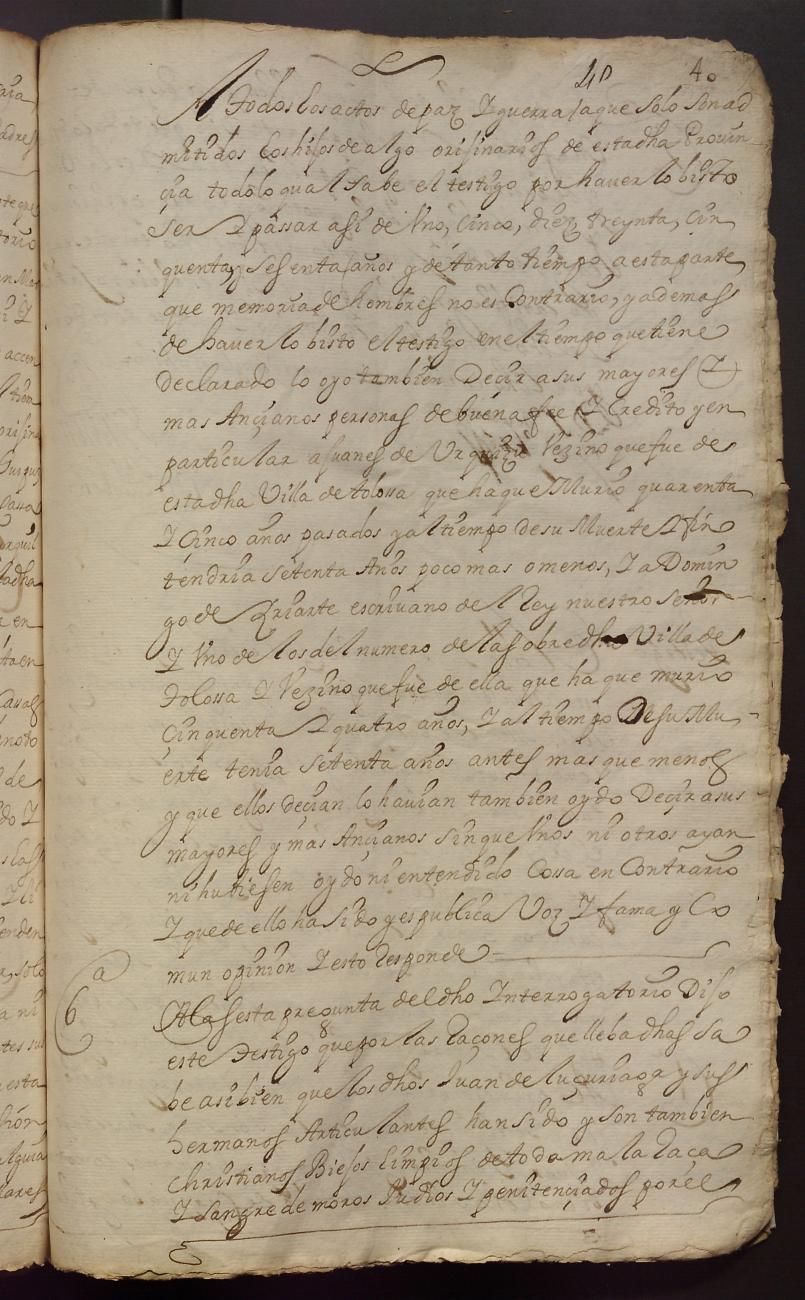 40 40
A todos los actos de paz Y guerra, a que solo son ad
mitidos los hijos de algo orijinarios de esta dha Provin
çia todo lo qual sabe el testigo por haverlo bisto
Ser Y passar asi de Uno, çinco, diez, treynta, çin
quenta, y sesenta años y de tanto tiempo a esta parte
que memoria de hombres no es Contrario, y ademas
de haverlo bisto el testigo en el tiempo que tiene
declarado lo oyo tambien Deçir a sus mayores Y
mas Ançianos personas de buena fee Y Credito y en
particular a Juanes de Urquiçu Vezino que fue de
esta dha Villa de tolossa que ha que Murio quarenta
Y Çinco años pasados y al tiempo de su Muerte Y fin
tendria setenta Años poco mas o menos, Y a Domin
go de Yriarte escrivano del Rey nuestro señor
Y Uno de los del numero de la sobre dha Villa de
tolossa Y Vezino que fue de ella que ha que murio
Çinquenta Y quatro años, Y al tiempo De su Mu
erte tenia setenta años antes mas que menos
y que ellos deçian lo havian tambien oydo Deçir a sus
mayores y mas Ançianos sin que Unos ni otros ayan
ni hubiesen oydo ni entendido Cossa en Contrario
Y que de ello ha sido y es publica Voz Y fama y Co
mun opinion Y esto Responde
6a
A la sesta pregunta del dho Interrogatorio Dijo
este testigo que por las Raçones que lleba dhas sa
be asi bien que los dhos Juan de luçuriaga y sus
hermanos Articulantes han sido y son tambien
christianos Biejos limpios de toda mala Raça
Y sangre de moros Judios Y penitençiados por el